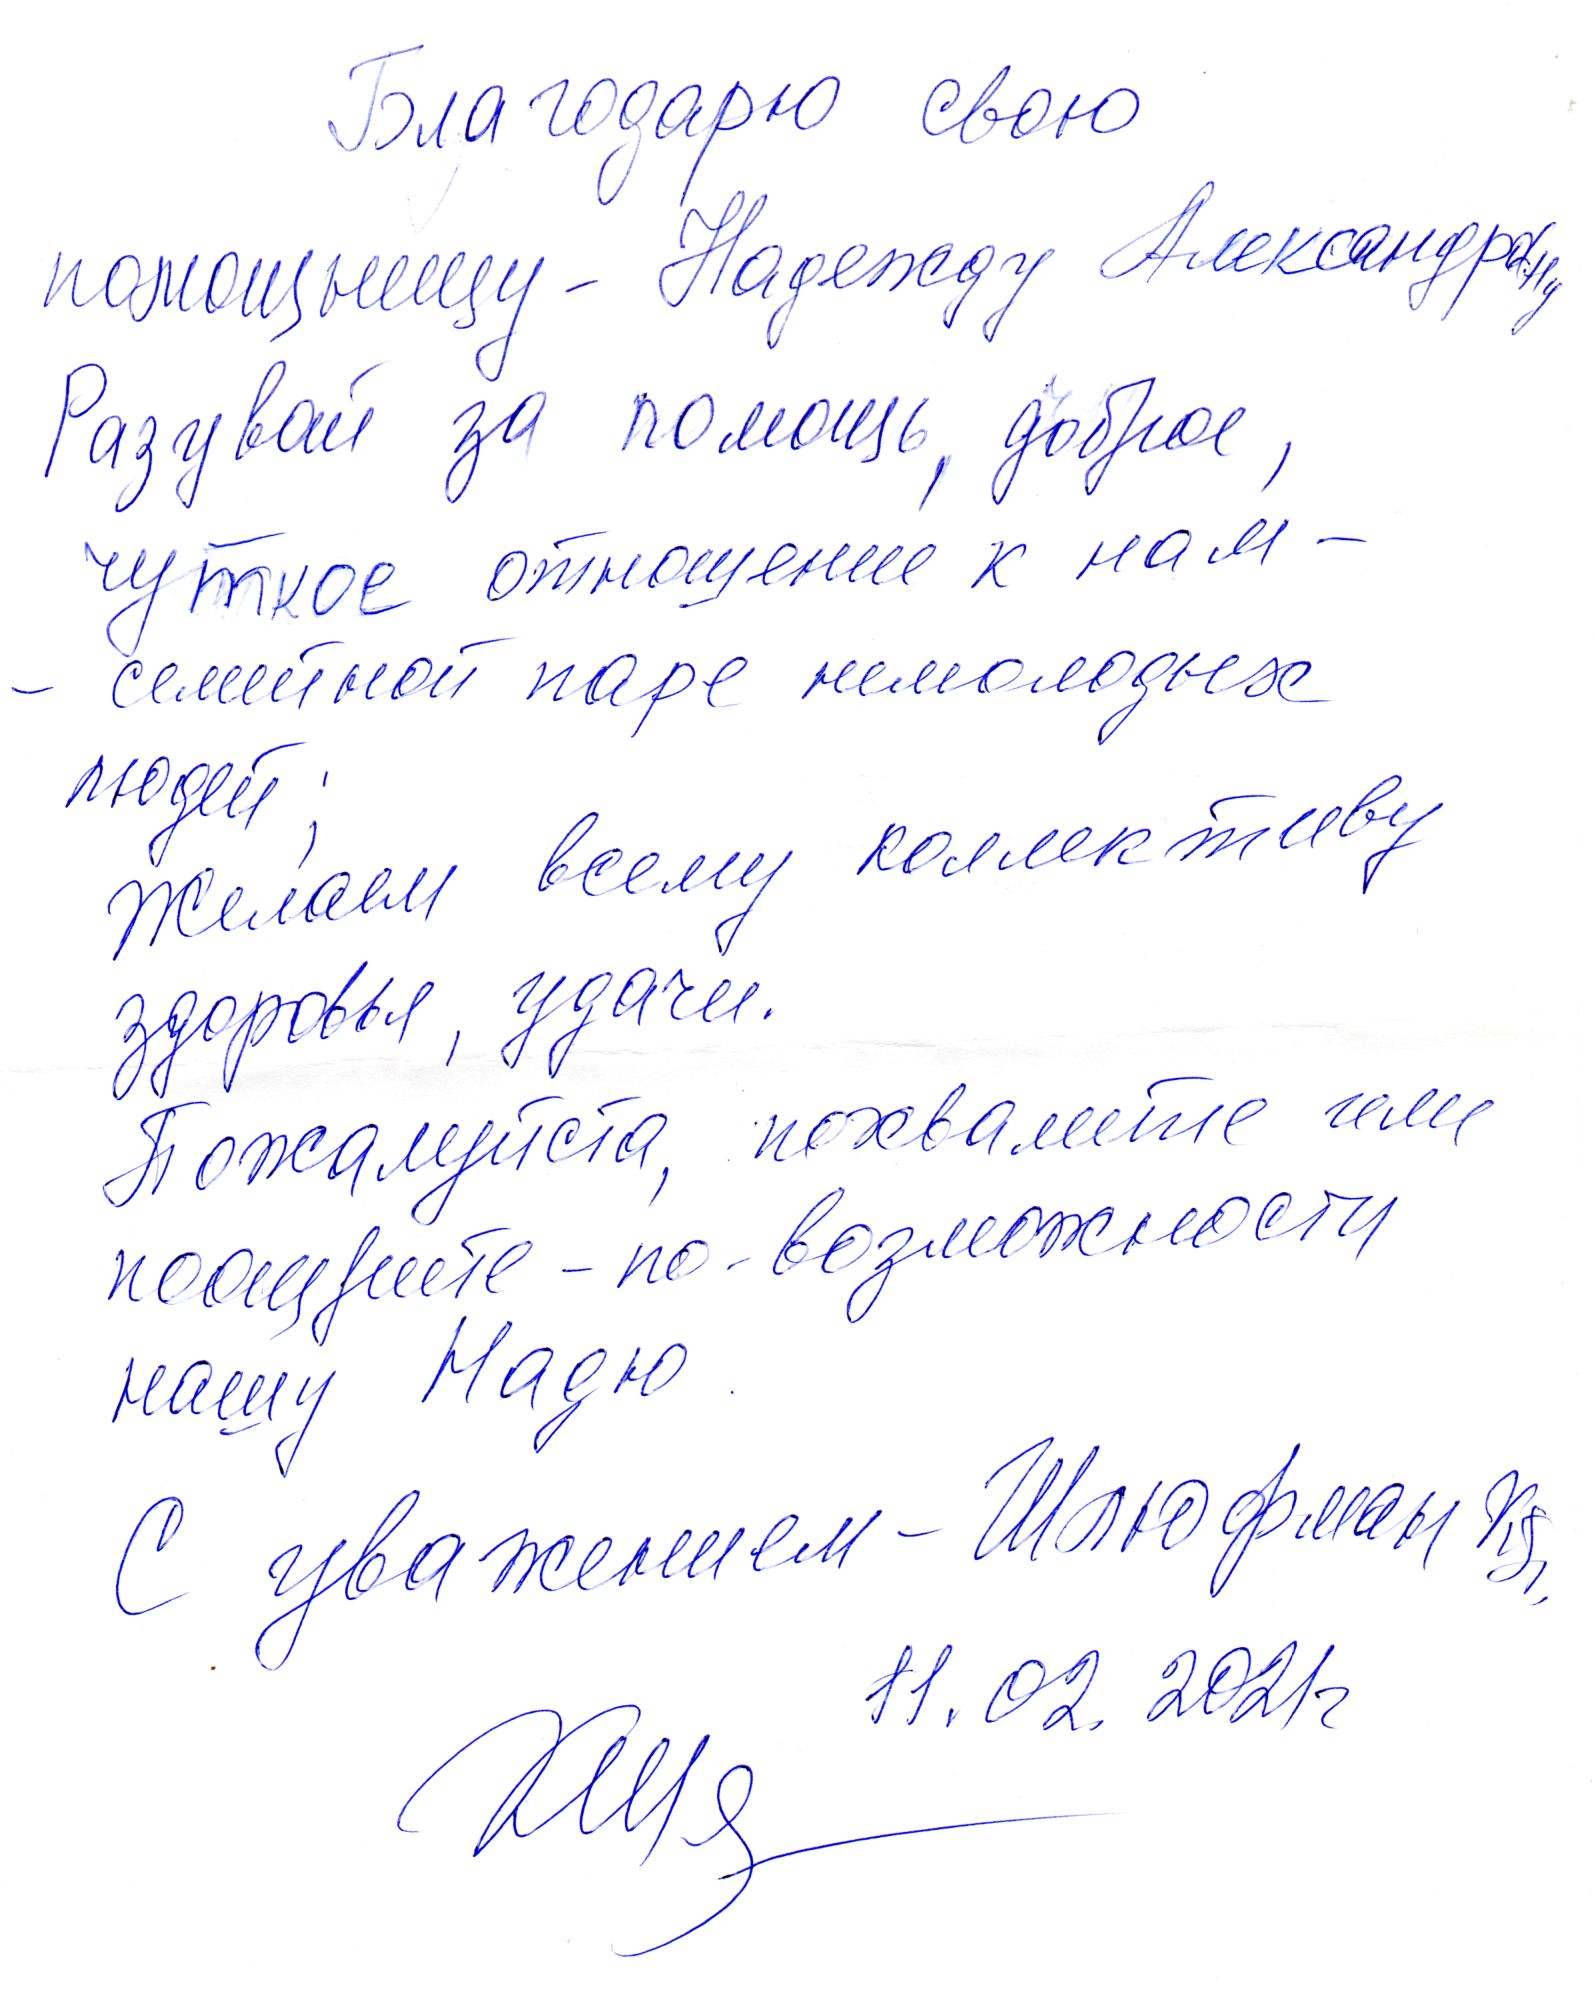 Благодарю свою
помощницу - Надежду Александровну
Разувай за помощь, доброе,
чуткое отношение к нам -
- семейной паре немолодых
людей;
Желаем всему коллективу
здоровья, удачи.
Пожалуйста, похвалите или
поощрите - по-возможности
нашу Надю
С уважением - Шлюфман
11.02.2021г